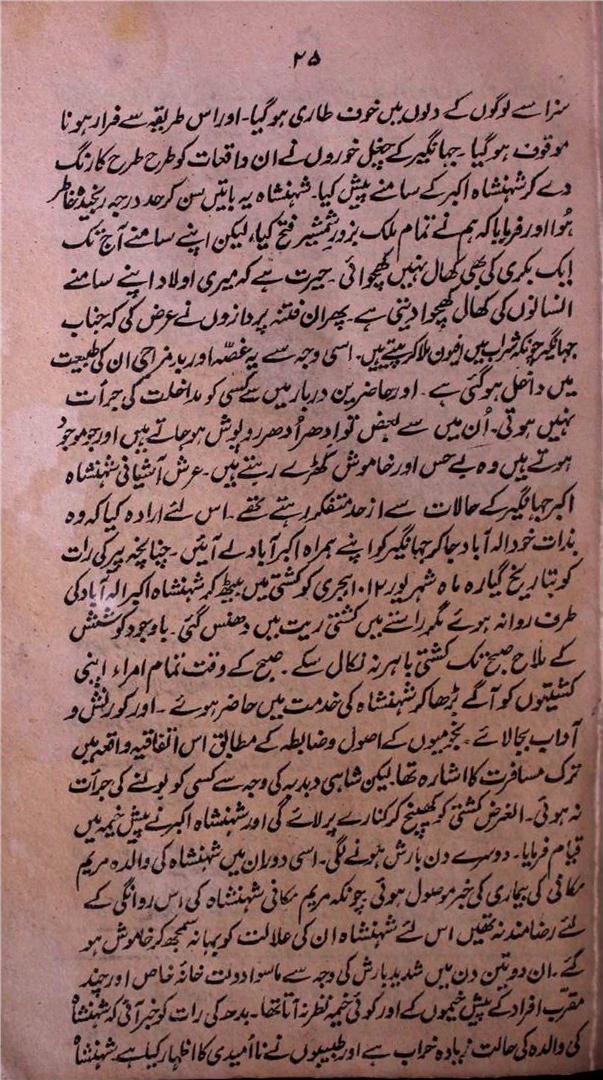 ۲۵
سزا سے لوگوں کے دلوں میں خوف طاری ہو گیا۔ اور اس طریقہ سے فرار ہونا
موقوف ہو گیا۔ جہانگیر کے چغل خوروں نے ان واقعات کو طرح طرح کا رنگ
دے کر شہنشاہ اکبر کے سامنے پیش کیا۔ شہنشاہ یہ باتیں سن کر حد درجہ رنجیدہ خاطر
ہُوا اور فرمایا کہ ہم نے تمام ملک بزور شمشیر فتح کیا، لیکن اپنے سامنے آج تک
ایک بکری کی بھی کھال نہیں کھچوائی۔ حیرت ہے کہ میری اولاد اپنے سامنے
انسانوں کی کھال کھچوا دیتی ہے۔ پھر ان فتنہ پردازوں نے عرض کی کہ جناب
جہانگیر چونکہ شراب میں افیون ملا کر پیتے ہیں۔ اسی وجہ سے یہ غصّہ اور بدمزاجی ان کی طبیعت
میں داخل ہو گئی ہے۔ اور حاضرین دربار میں سے کسی کو مداخلت کی جرأت
نہیں ہوتی۔ اُن میں سے بعض تو اِدھر اُدھر روپوش ہو جاتے ہیں اور جو موجود
ہوتے ہیں وہ بے حس اور خاموش کھڑے رہتے ہیں۔ عرش آشیانی شہنشاہ
اکبر جہانگیر کے حالات سے از حد متفکر رہتے تھے۔ اس لئے ارادہ کیا کہ وہ
بذات خود الہ آباد جا کر جہانگیر کو اپنے ہمراہ اکبر آباد لے آئیں۔ چنانچہ پیر کی رات
کو بتاریخ گیارہ ماہ شہریور ۱۰۱۲ ہجری کو کشتی میں بیٹھ کر شہنشاہ اکبر الہ آباد کی
طرف روانہ ہوئے مگر راستے میں کشتی ریت میں دھنس گئی۔ باوجود کوشش
کے ملاح صبح تک کشتی باہر نہ نکال سکے۔ صبح کے وقت تمام امراء اپنی
کشتیوں کو آگے بڑھا کر شہنشاہ کی خدمت میں حاضر ہوئے۔ اور کورنش و
آداب بجا لائے۔ نجومیوں کے اصول و ضابطہ کے مطابق اس اتفاقیہ واقعہ میں
ترک مسافرت کا اشارہ تھا لیکن شاہی دبدبہ کی وجہ سے کسی کو بولنے کی جرأت
نہ ہوئی۔ الغرض کشتی کو کھینچ کر کنارے پر لائے گی اور شہنشاہ اکبر نے پیش خیمہ میں
قیام فرمایا۔ دوسرے دن بارش ہونے لگی۔ اسی دوران میں شہنشاہ کی والدہ مریم
مکانی کی بیماری کی خبر موصول ہوئی چونکہ مریم مکانی شہنشاہ کی اس روانگی کے
لئے رضامند نہ تھیں اس لئے شہنشاہ ان کی علالت کو بہانہ سمجھ کر خاموش ہو
گئے۔ ان دو تین دن میں شدید بارش کی وجہ سے ماسوا دولت خانہ خاص اور چند
مقرب افراد کے پیش خیموں کے اور کوئی خیمہ نظر نہ آتا تھا۔ بدھ کی رات کو خبر آئی کہ شہنشاہ
کی والدہ کی حالت زیادہ خراب ہے اور طبیبوں نے نا اُمیدی کا اظہار کیا ہے شہنشاہ